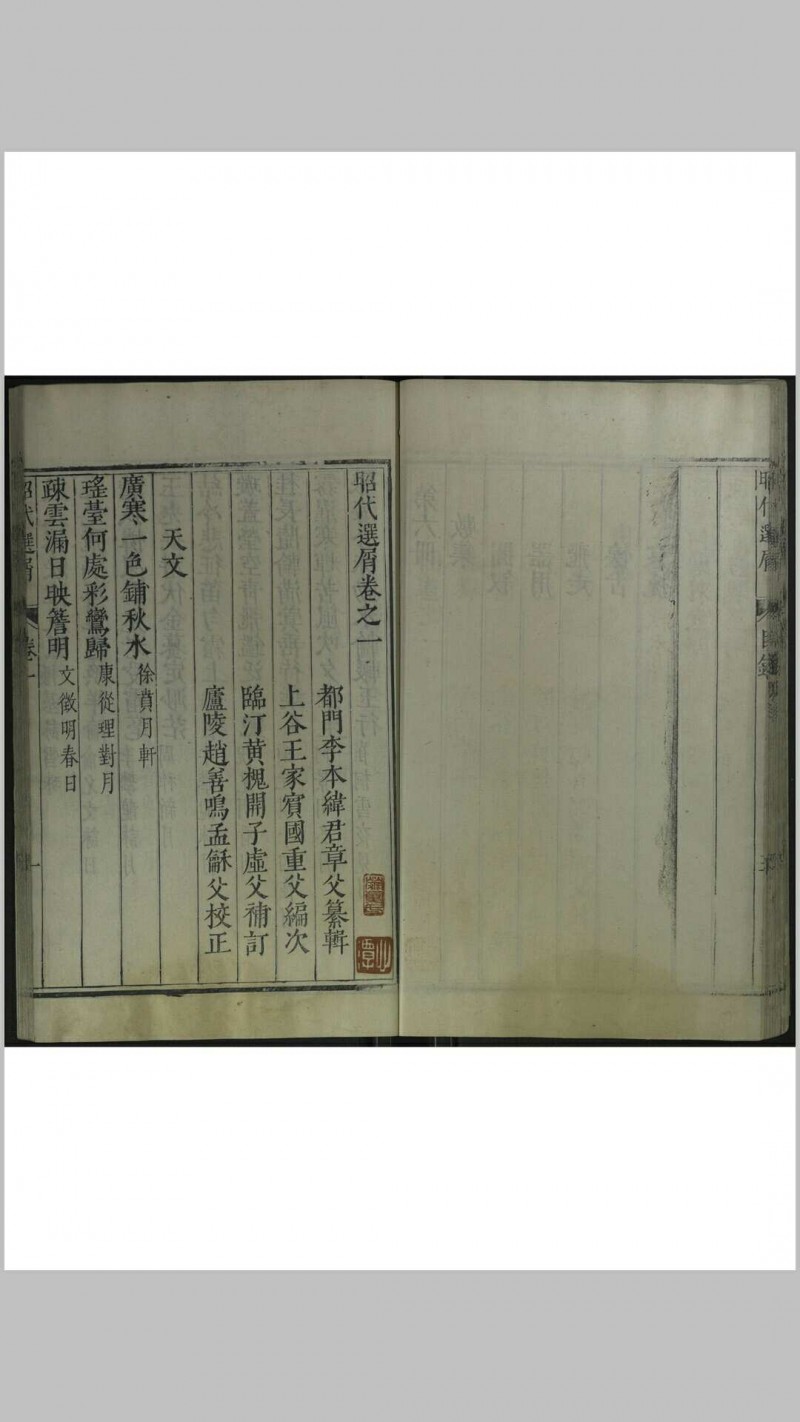 昭代選屑
目錄
昭代選屑卷之一
都門李本緯君章父纂輯
上谷王家賓國重父編次
臨汀黃槐開子虛父補訂
廬陵趙善鳴孟龢父校正
天文
廣寒一色鋪秋水 徐賁月軒
瑤臺何處彩鸞歸 康從理對月
疎雲漏日映簷明 文徵明春日
昭代選屑 卷一 一